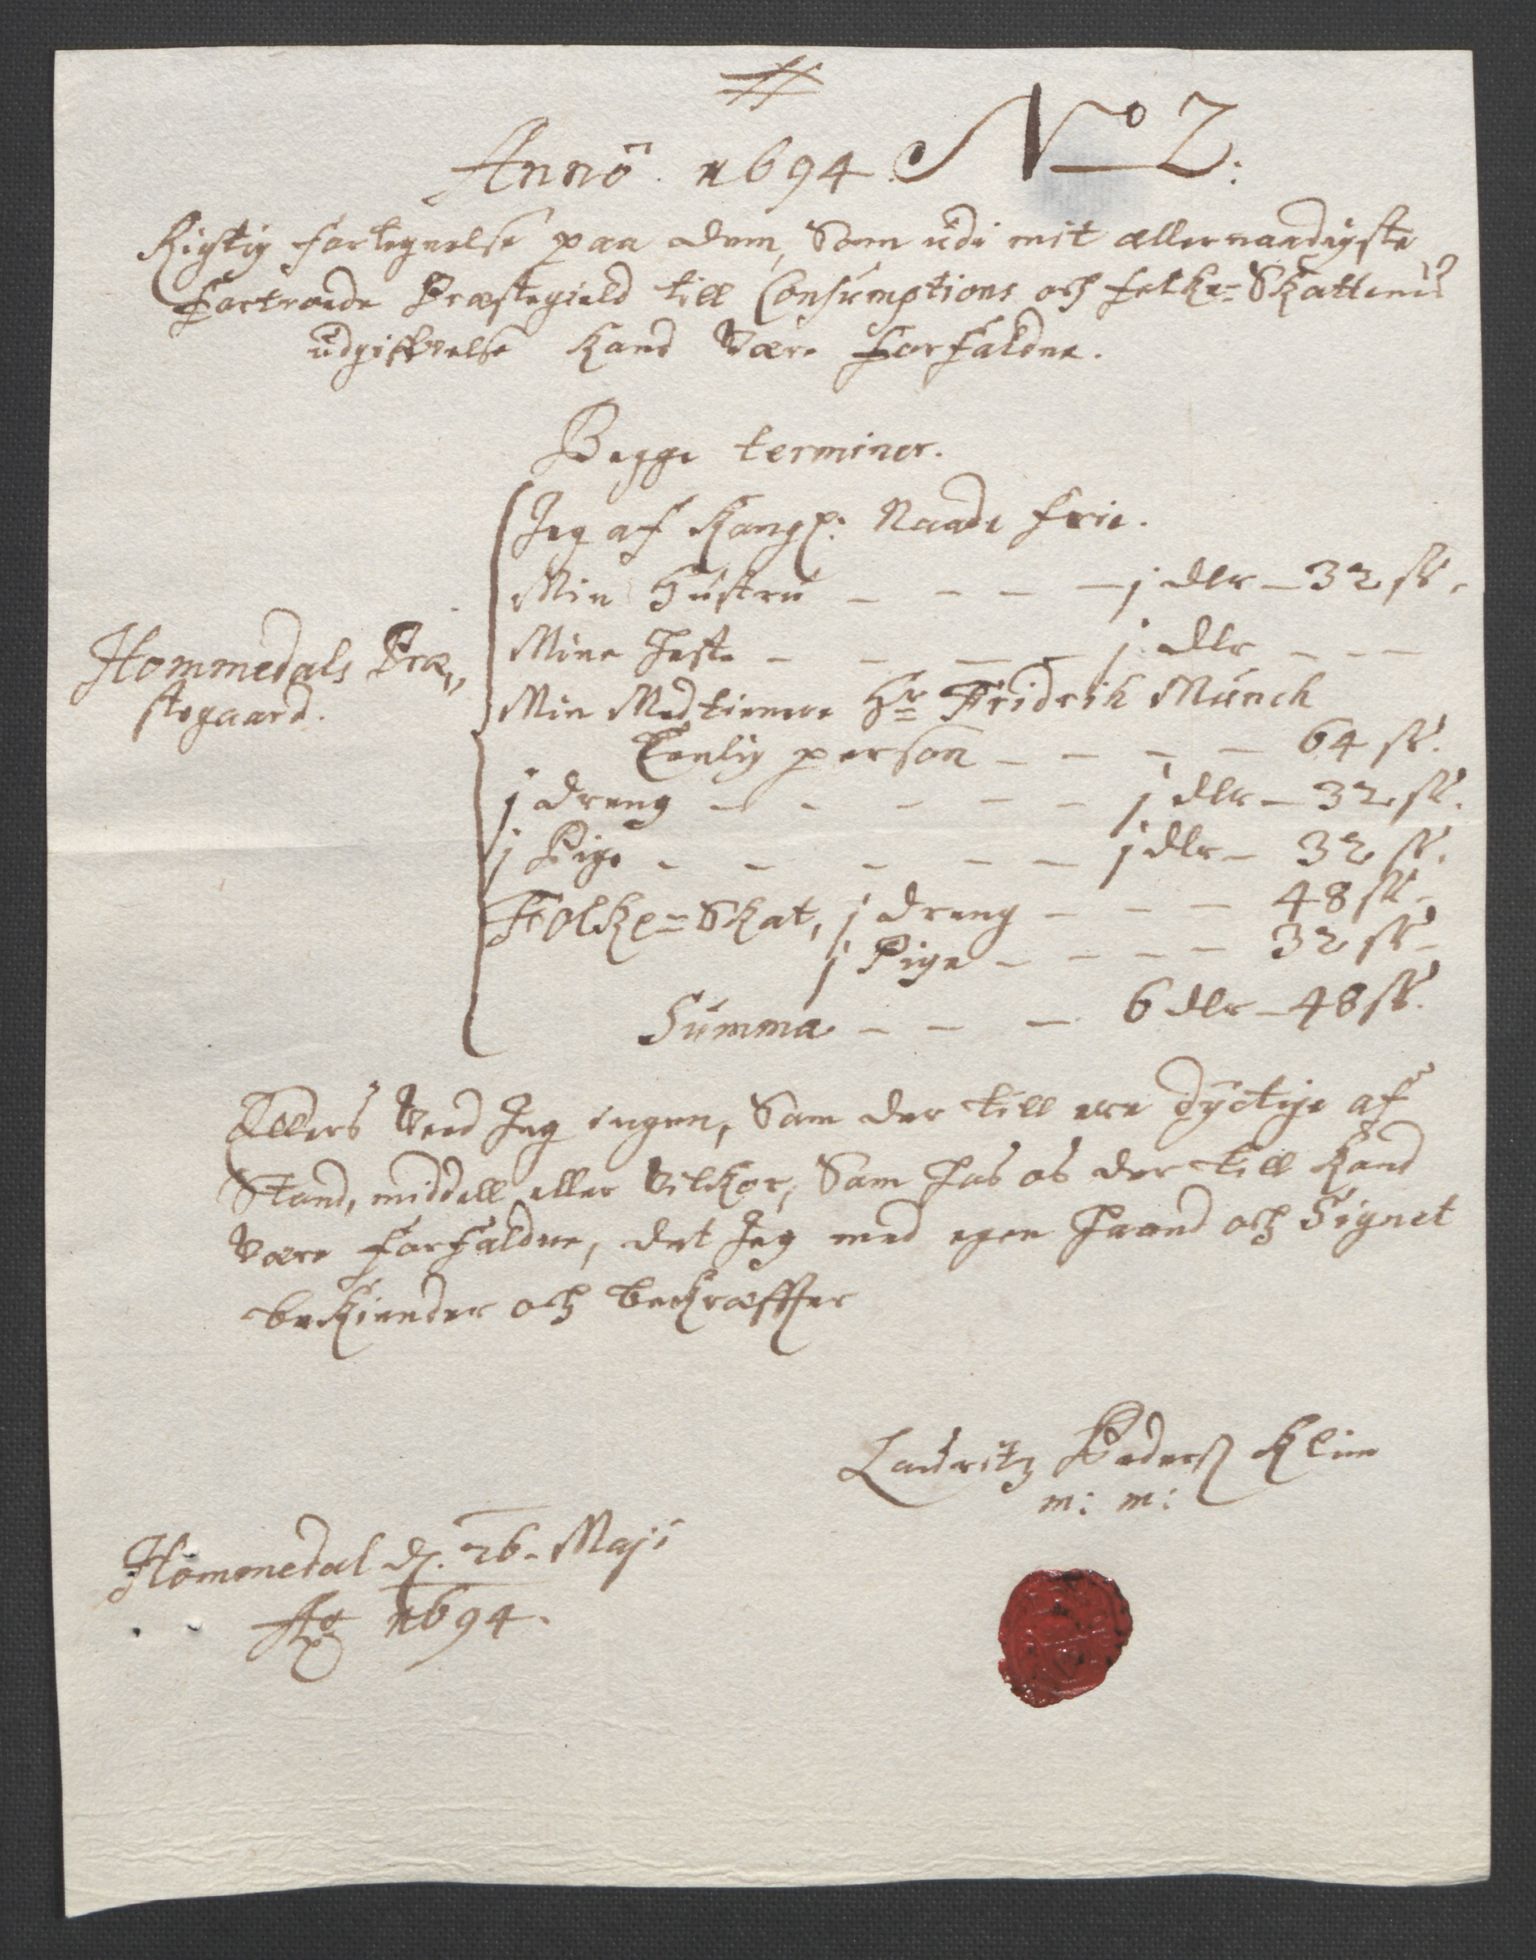 Anno 1694. No 2:
Rigtig fortegnelse paa dem, Som udi mit allernaadigste
fortroede Præstegield till Consumptions och folke=Skattens
udgiffvelse Kand være forfaldne.
Begge terminer.
Jeg af Kongl: Naade frie.
Min Hustru - - - - j dlr - 32 sk.
Mine Heste - - - - j dlr - - -
Min Medtienere Hr Fridrich Munch
Eenlig person - - - - 64 sk.
Hommedals Præ,,
stegaard.
j dreng - - - - - j dlr - 32 sk.
j Pige - - - - - j dlr - 32 sk.
Folke=Skat, j dreng - - - 48 sk.
j Pige - - - - 32 sk.
Summa - - - 6 dlr - 48 sk.
Ellers Veed Jeg ingen, Som der till ere dyctige af
Stand, middell eller Vilkor, Som hos os der till Kand
Være forfaldne, det Jeg med egen Haand och Signet
bekiender och bekræffter
Lauritz Pederß Klim
m: m:
Hommedal d. 26. Maji
Ao 1694.